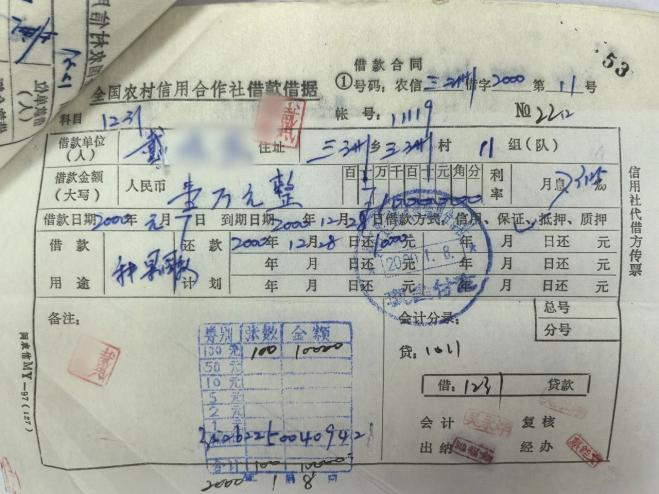 53
借款合同
全国农村信用合作社借款借据
①号码：农信三洲借字2000第11号
科目 1231
帐号：11119
№2212
借款单位（人） 戴 住址 三洲乡三洲村11组（队）
借款金额（大写） 人民币 壹万元整
百十万千百十元角分
利率 月息 ‰
借款日期2000年元月7日 到期日期2000年12月28日借款方式，信用、保证、抵押、质押
借款用途 种果
还款计划
2000年12月28日还10000元 年 月 日还 元
年 月 日还 元 年 月 日还 元
年 月 日还 元 年 月 日还 元
信用社代借方传票
备注：
会计分录：
总号
分号
贷：1011
借：1231 贷款
会计 复核
出纳 经办
券别 张数 金额
100元 100 10000
50元
10元
5元
2元
1元
合计 100 10000
2000年1月8日
MY—97(127)